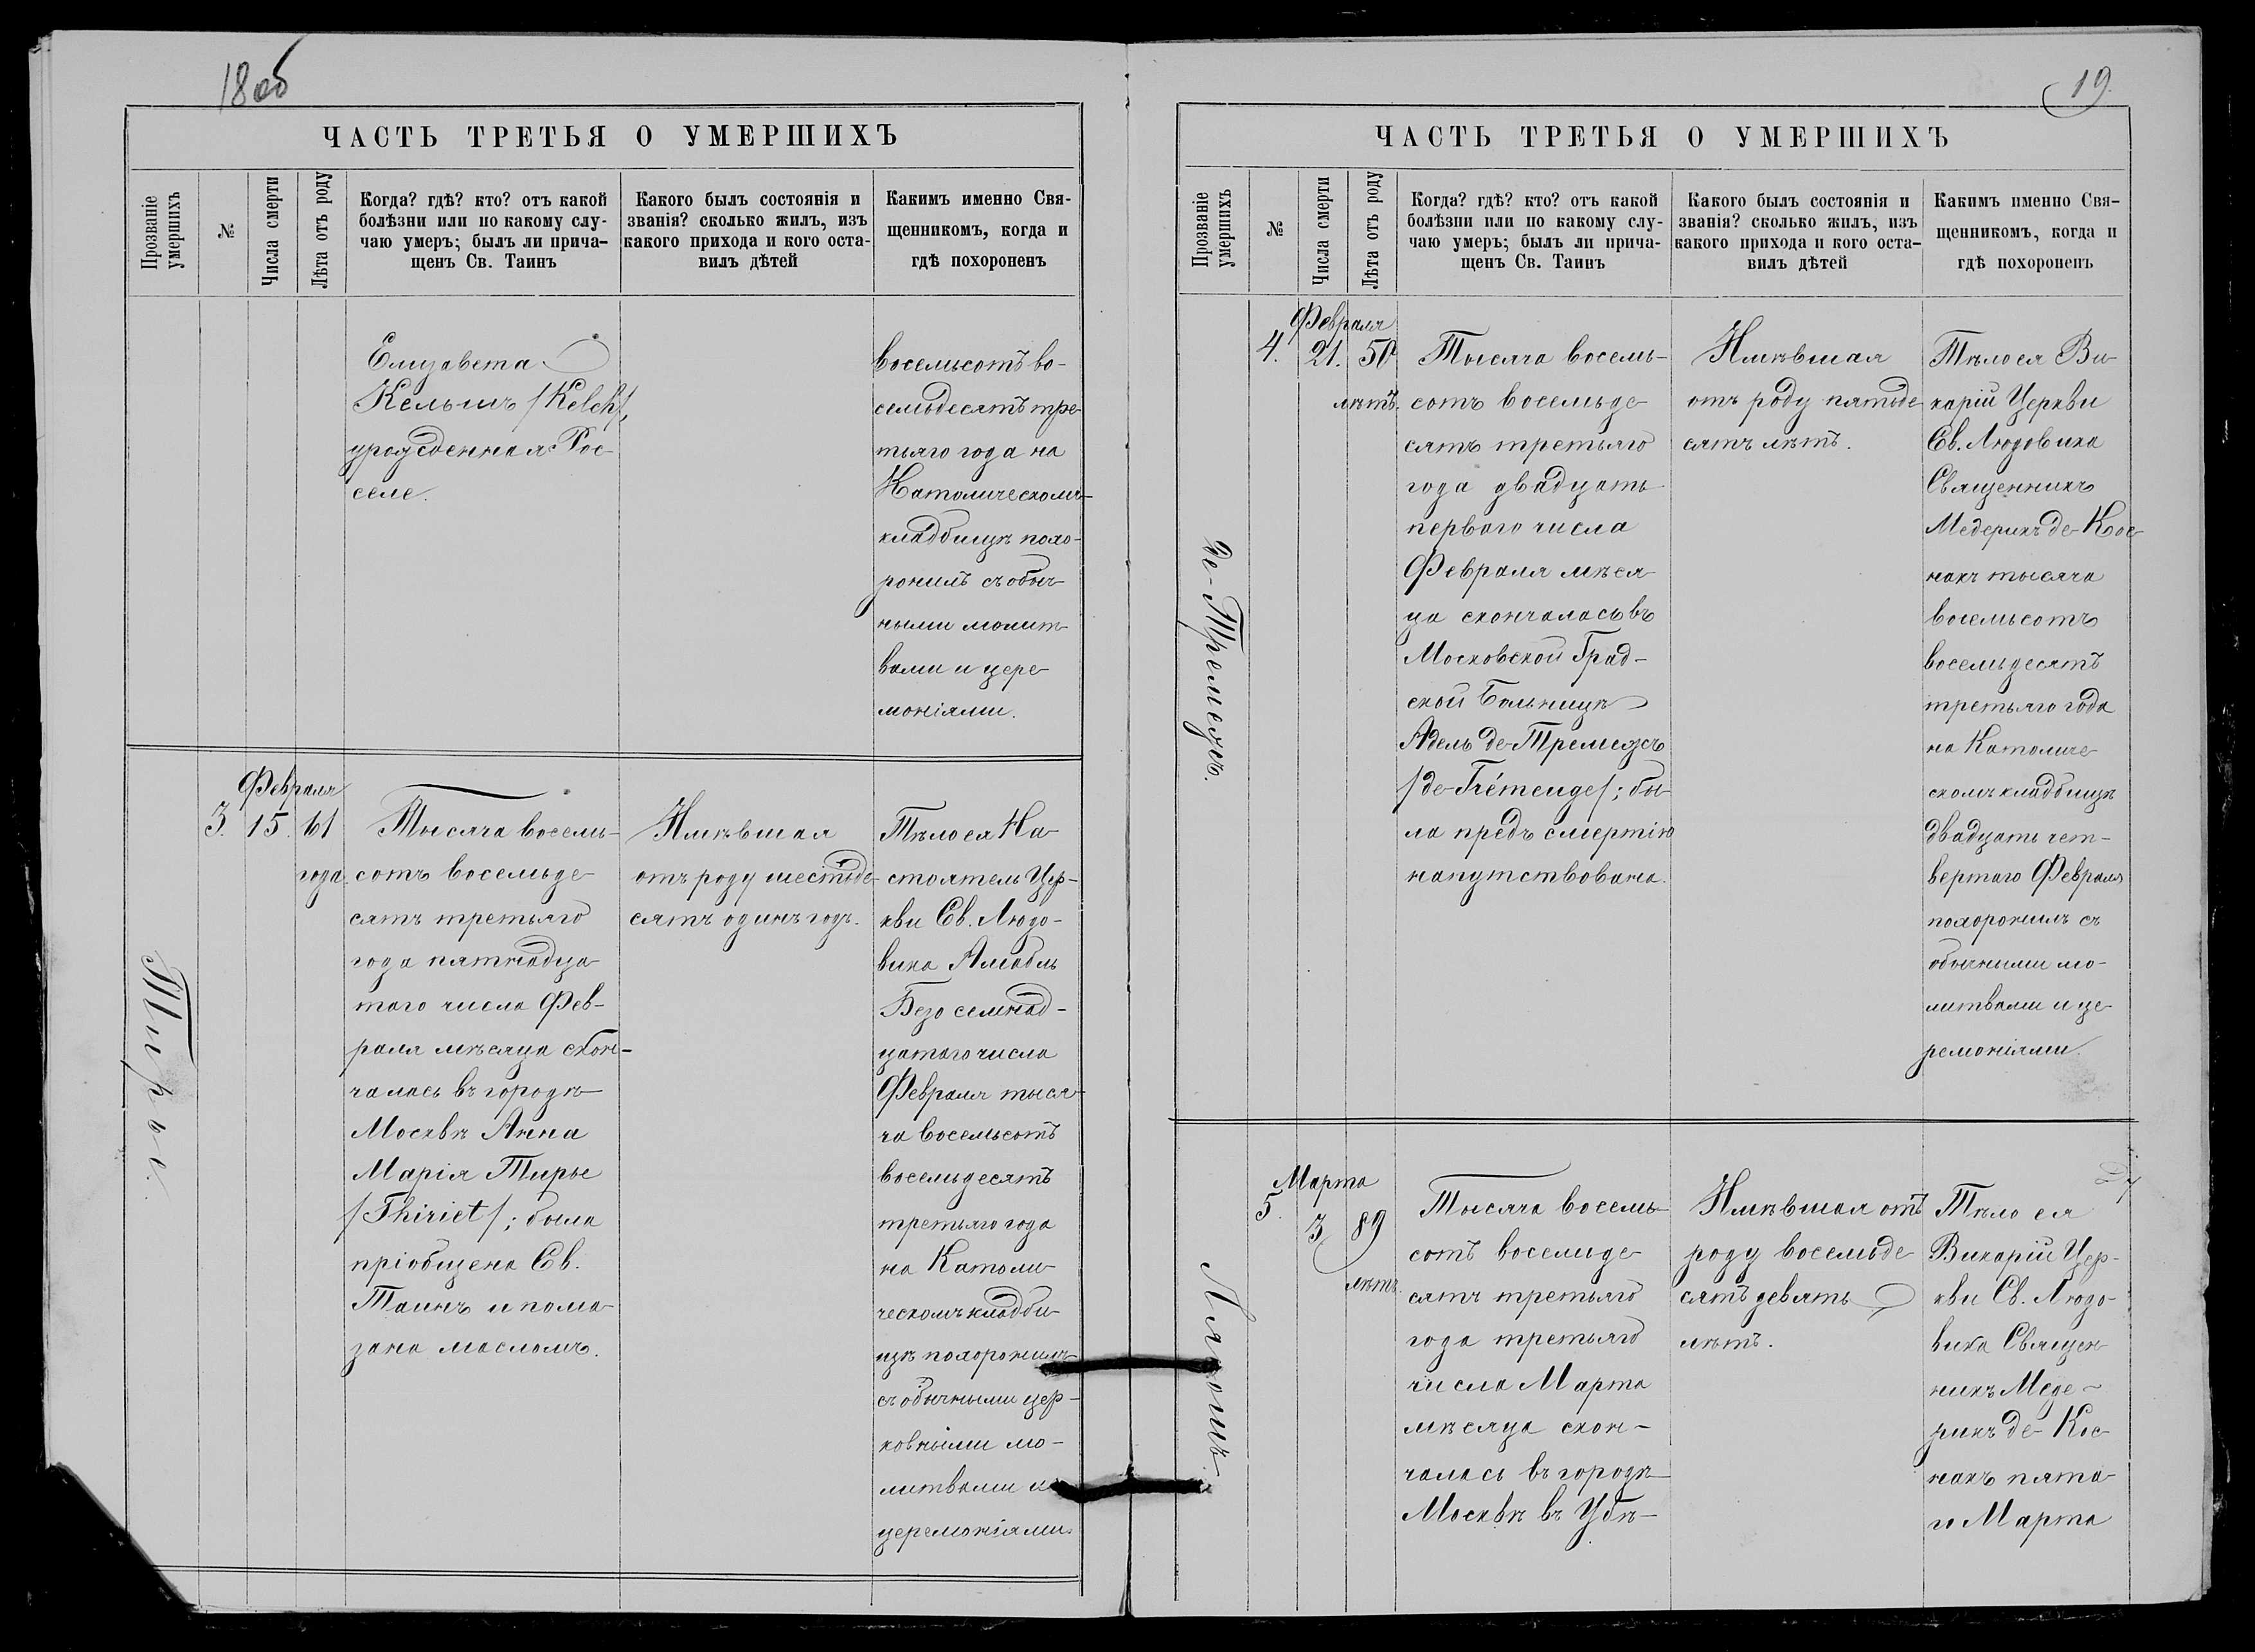 18об
ЧАСТЬ ТРЕТЬЯ О УМЕРШИХЪ
Прозваніе
умершихъ
№
Числа смерти
Лѣта отъ роду
Когда? гдѣ? кто? отъ какой
болѣзни или по какому слу-
чаю умеръ; былъ ли прича-
щенъ Св. Таинъ
Какого былъ состоянія и
званія? сколько жилъ, изъ
какого прихода и кого оста-
вилъ дѣтей
Какимъ именно Свя-
щенникомъ, когда и
гдѣ похороненъ
Елизавета
Кельшъ /Kelch/,
урожденная Рос
селе.
восемьсотъ во-
семьдесятъ тре-
тьяго года на
Католическомъ
кладбищѣ похо-
ронилъ съ обыч-
ными молит-
вами и цере-
моніями.
Тирье.
Февраля
3. 15. 61
года.
Тысяча восемь-
сотъ восемьде-
сятъ третьяго
года пятнадца-
таго числа Фев-
раля мѣсяца скон-
чалась въ городѣ
Москвѣ Анна
Марія Тирье
/Thiriet/; была
пріобщена Св.
Таинъ и пома-
зана масломъ.
Имѣвшая
отъ роду шестьде-
сятъ одинъ годъ.
Тѣло ея На-
стоятель Цер-
кви Св. Людо-
вика Амабль
Безо семнад-
цатаго числа
Февраля тыся-
ча восемьсотъ
восемьдесятъ
третьяго года
на Католи-
ческомъ кладби-
щѣ похоронилъ
съ обычными цер-
ковными мо-
литвами и
церемоніями.
19.
ЧАСТЬ ТРЕТЬЯ О УМЕРШИХЪ
Прозваніе
умершихъ
№
Числа смерти
Лѣта отъ роду
Когда? гдѣ? кто? отъ какой
болѣзни или по какому слу-
чаю умеръ; былъ ли прича-
щенъ Св. Таинъ
Какого былъ состоянія и
званія? сколько жилъ, изъ
какого прихода и кого оста-
вилъ дѣтей
Какимъ именно Свя-
щенникомъ, когда и
гдѣ похороненъ
де-Тремежъ.
Февраля
4. 21. 50
лѣтъ.
Тысяча восемь-
сотъ восемьде-
сятъ третьяго
года двадцать
перваго числа
Февраля мѣся-
ца скончалась въ
Московской Град-
ской Больницѣ
Адель де-Тремежъ
/de-Trémeuge/; бы-
ла предъ смертію
напутствована.
Имѣвшая
отъ роду пятьде-
сятъ лѣтъ.
Тѣло ея Ви-
карій Церкви
Св. Людовика
Священникъ
Медерикъ де-Кос-
накъ тысяча
восемьсотъ
восемьдесятъ
третьяго года
на Католиче-
скомъ кладбищѣ
двадцать чет-
вертаго Февраля
похоронилъ съ
обычными мо-
литвами и це-
ремоніями.
Марта
5. 3 89
лѣтъ.
Тысяча восемь-
сотъ восемьде-
сятъ третьяго
года третьяго
числа Марта
мѣсяца скон-
чалась въ городѣ
Москвѣ въ Убѣ-
Имѣвшая отъ
роду восемьде-
сятъ девять
лѣтъ.
Тѣло ея
Викарій Цер-
кви Св. Людо-
вика Священ-
никъ Меде-
рикъ де-Кос-
накъ пята-
го Марта